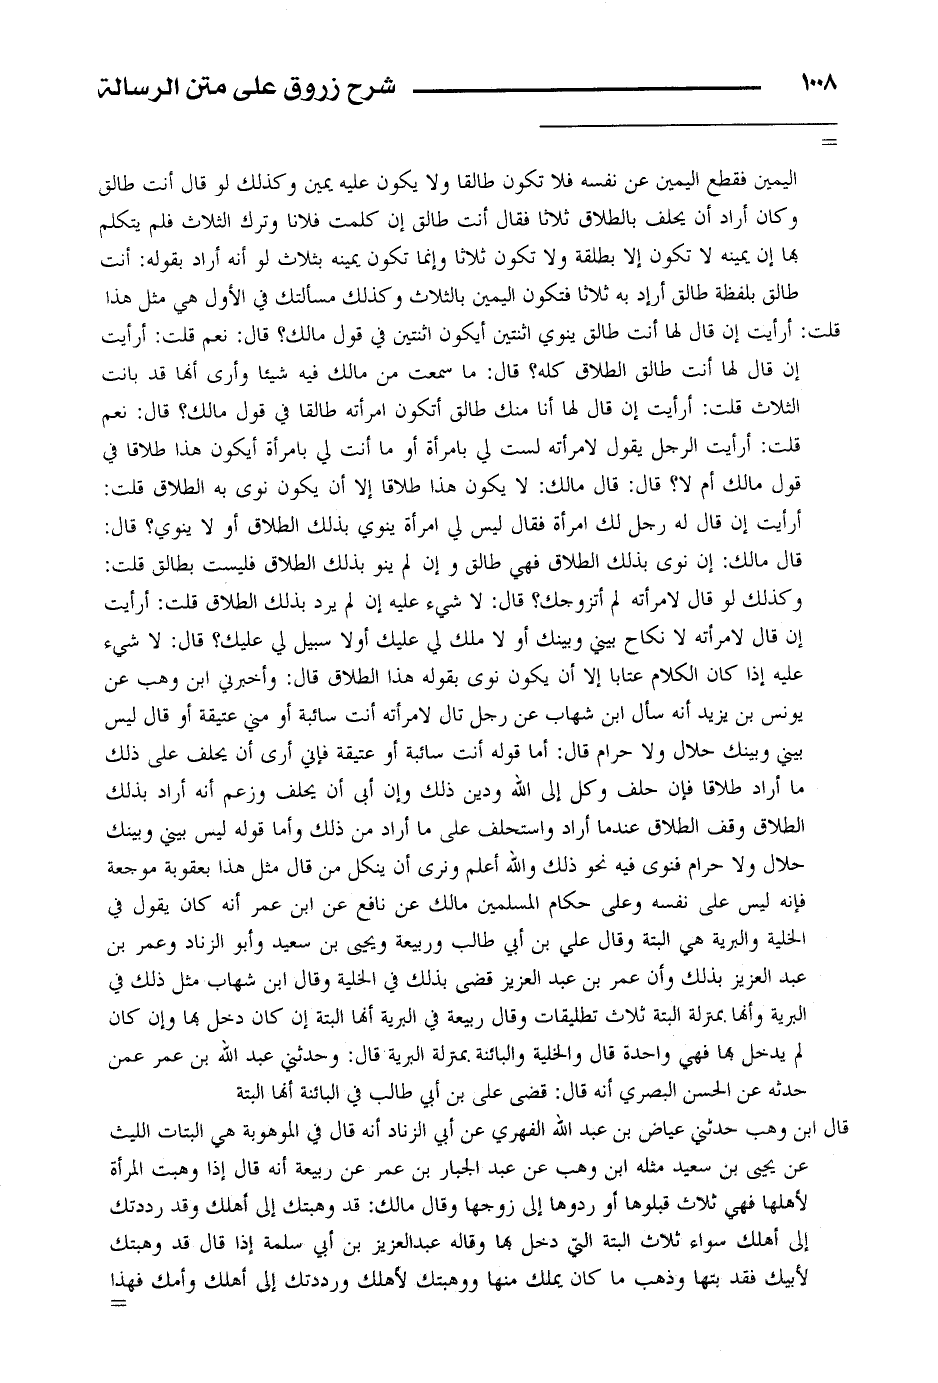 ١٠٠٨ شرح زروق على متن الرسالة
=
اليمين فقطع اليمين عن نفسه فلا تكون طالقا ولا يكون عليه يمين وكذلك لو قال أنت طالق
وكان أراد أن يحلف بالطلاق ثلاثا فقال أنت طالق إن كلمت فلانا وترك الثلاث فلم يتكلم
بها إن يمينه لا تكون إلا بطلقة ولا تكون ثلاثا وإنما تكون يمينه بثلاث لو أنه أراد بقوله: أنت
طالق بلفظة طالق أراد به ثلاثا فتكون اليمين بالثلاث وكذلك مسألتك في الأول هي مثل هذا
قلت: أرأيت إن قال لها أنت طالق ينوي اثنتين أيكون اثنتين في قول مالك؟ قال: نعم قلت: أرأيت
إن قال لها أنت طالق الطلاق كله؟ قال: ما سمعت من مالك فيه شيئا وأرى أنها قد بانت
الثلاث قلت: أرأيت إن قال لها أنا منك طالق أتكون امرأته طالقا في قول مالك؟ قال: نعم
قلت: أرأيت الرجل يقول لامرأته لست لي بامرأة أو ما أنت لي بامرأة أيكون هذا طلاقا في
قول مالك أم لا؟ قال: قال مالك: لا يكون هذا طلاقا إلا أن يكون نوى به الطلاق قلت:
أرأيت إن قال له رجل لك امرأة فقال ليس لي امرأة ينوي بذلك الطلاق أو لا ينوي؟ قال:
قال مالك: إن نوى بذلك الطلاق فهي طالق و إن لم ينو بذلك الطلاق فليست بطالق قلت:
وكذلك لو قال لامرأته لم أتزوجك؟ قال: لا شيء عليه إن لم يرد بذلك الطلاق قلت: أرأيت
إن قال لامرأته لا نكاح بيني وبينك أو لا ملك لي عليك أولا سبيل لي عليك؟ قال: لا شيء
عليه إذا كان الكلام عتابا إلا أن يكون نوى بقوله هذا الطلاق قال: وأخبرني ابن وهب عن
يونس بن يزيد أنه سأل ابن شهاب عن رجل تال لامرأته أنت سائبة أو مني عتيقة أو قال ليس
بيني وبينك حلال ولا حرام قال: أما قوله أنت سائبة أو عتيقة فإني أرى أن يحلف على ذلك
ما أراد طلاقا فإن حلف وكل إلى الله ودين ذلك وإن أبى أن يحلف وزعم أنه أراد بذلك
الطلاق وقف الطلاق عندما أراد واستحلف على ما أراد من ذلك وأما قوله ليس بيني وبينك
حلال ولا حرام فنوى فيه نحو ذلك والله أعلم ونرى أن ينكل من قال مثل هذا بعقوبة موجعة
فإنه ليس على نفسه وعلى حكام المسلمين مالك عن نافع عن ابن عمر أنه كان يقول في
الخلية والبرية هي البتة وقال علي بن أبي طالب وربيعة ويحيى بن سعيد وأبو الزناد وعمر بن
عبد العزيز بذلك وأن عمر بن عبد العزيز قضى بذلك في الخلية وقال ابن شهاب مثل ذلك في
البرية وأنها بمنزلة البتة ثلاث تطليقات وقال ربيعة في البرية أنها البتة إن كان دخل بها وإن كان
لم يدخل بها فهي واحدة قال والخلية والبائنة بمنزلة البرية قال: وحدثني عبد الله بن عمر عمن
حدثه عن الحسن البصري أنه قال: قضى على بن أبي طالب في البائنة أنها البتة
قال ابن وهب حدثني عياض بن عبد الله الفهري عن أبي الزناد أنه قال في الموهوبة هي البتات الليث
عن يحيى بن سعيد مثله ابن وهب عن عبد الجبار بن عمر عن ربيعة أنه قال إذا وهبت المرأة
لأهلها فهي ثلاث قبلوها أو ردوها إلى زوجها وقال مالك: قد وهبتك إلى أهلك وقد رددتك
إلى أهلك سواء ثلاث البتة التي دخل بها وقاله عبدالعزيز بن أبي سلمة إذا قال قد وهبتك
لأبيك فقد بتها وذهب ما كان يملك منها ووهبتك لأهلك ورددتك إلى أهلك وأمك فهذا
=